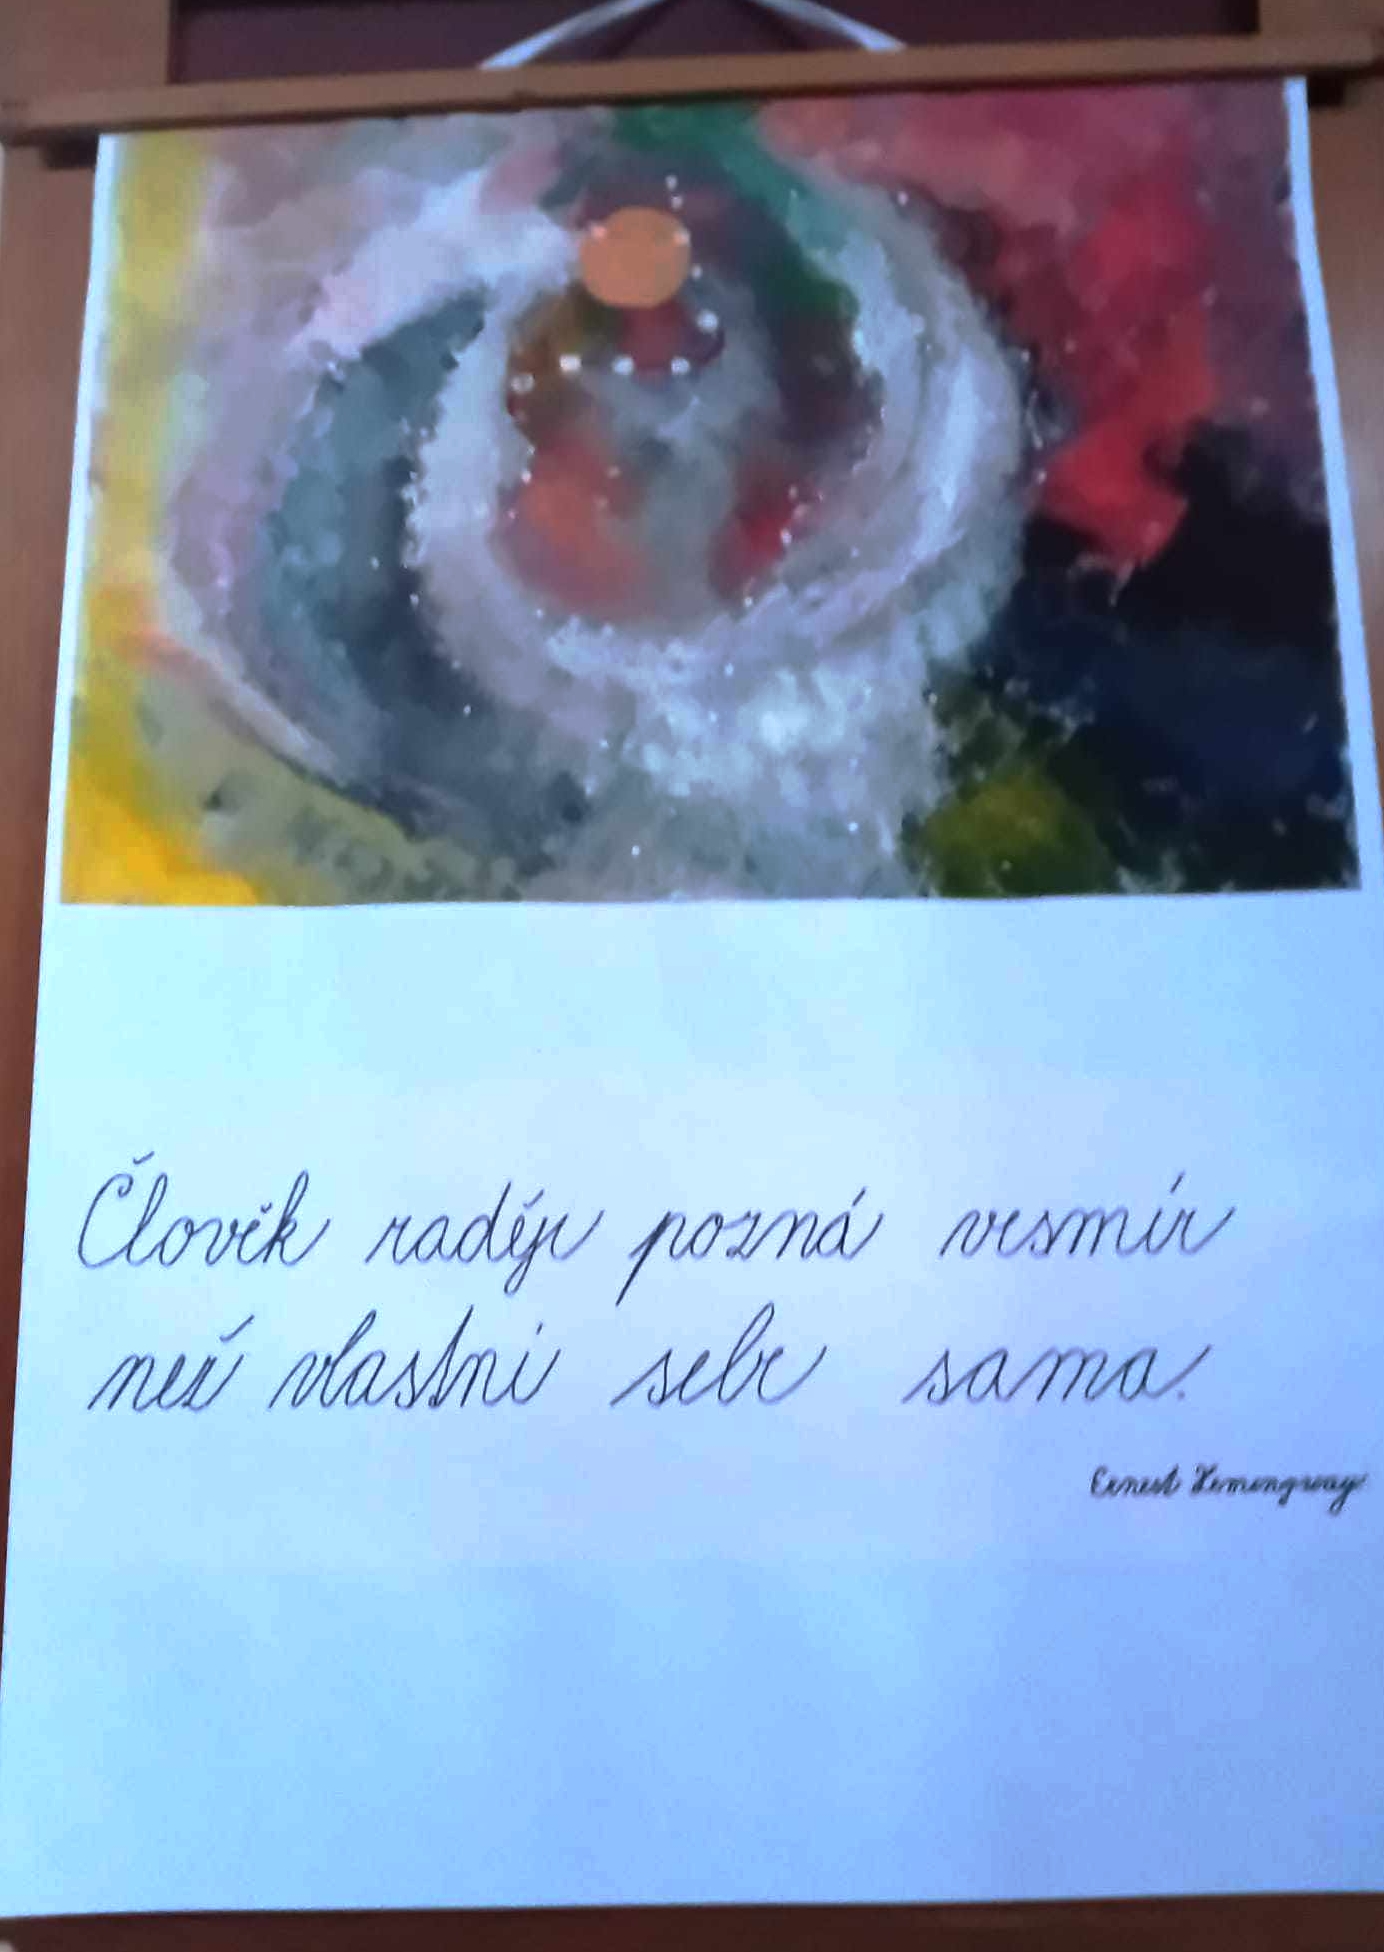 Člověk raději pozná vesmír
než vlastní sebe sama.
Ernest Hemingway